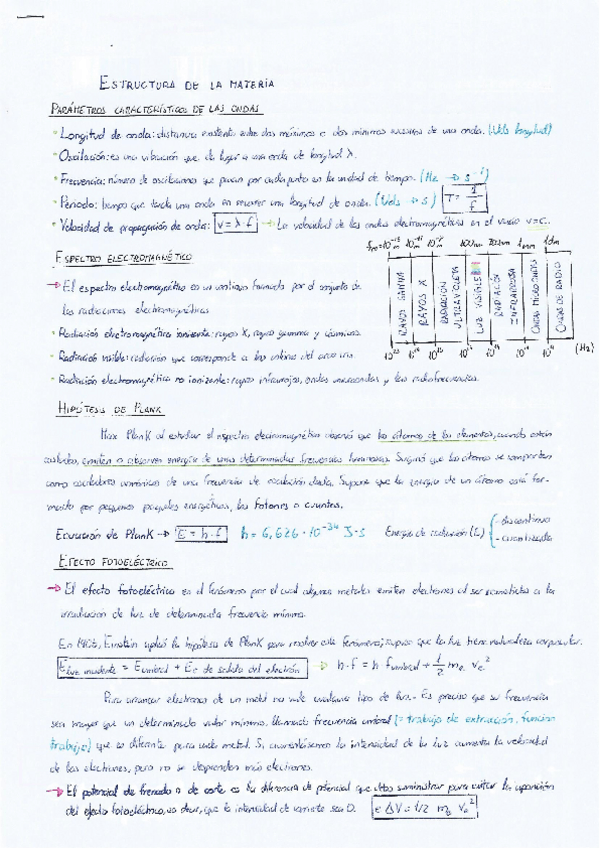 ESTRUCTURA DE LA MATERIA
PARÁMETROS CARACTERÍSTICOS DE LAS ONDAS
· Longitud de onda: distancia existente entre dos máximos o dos mínimos sucesivos de una onda. (Uds longitud)
· Oscilación: es una vibración que da lugar a una onda de longitud λ.
· Frecuencia: número de oscilaciones que pasan por cada punto en la unidad de tiempo. (Hz → s⁻¹)
· Periodo: tiempo que tarda una onda en recorrer una longitud de onda. (Uds → s) T = 1/f
· Velocidad de propagación de onda: v = λ · f → La velocidad de las ondas electromagnéticas en el vacío v=c.
ESPECTRO ELECTROMAGNÉTICO
→ El espectro electromagnético es un continuo formado por el conjunto de
las radiaciones electromagnéticas.
· Radiación electromagnética ionizante: rayos X, rayos gamma y
· Radiación visible: radiación que corresponde a los colores del arco iris
· Radiación electromagnética no ionizante: rayos infrarrojos, ondas microondas y las radiofrecuencias.
RAYOS GAMMA
RAYOS X
RADIACIÓN ULTRAVIOLETA
LUZ VISIBLE
RADIACIÓN INFRARROJA
ONDAS MICROONDAS
ONDAS DE RADIO
(Hz)
HIPÓTESIS DE PLANK
Max Plank al estudiar el espectro electromagnético observó que los átomos de los elementos, cuando están
excitados, emiten o absorven energía de unas determinadas frecuencias luminosas. Sugirió que los átomos se comportan
como osciladores armónicos de una frecuencia de oscilación dada. Supuso que la energía de un átomo está for-
mada por pequeños paquetes energéticos, los fotones o cuantos.
Ecuación de Plank → E = h · f h = 6,626 · 10⁻³⁴ J·s Energía de radiación (E) { - discontinua
- cuantizada
EFECTO FOTOELÉCTRICO
→ El efecto fotoeléctrico es el fenómeno por el cual algunos metales emiten electrones al ser sometidos a la
irradiación de luz de determinada frecuencia mínima.
En Einstein aplicó la hipótesis de Plank para resolver este fenómeno; supuso que la luz tiene naturaleza corpuscular.
E luz incidente = E umbral + Ec de salida del electrón → h · f = h f umbral + 1/2 me ve²
Para arrancar electrones de un metal no vale cualquier tipo de luz. Es preciso que su frecuencia
sea mayor que un determinado valor mínimo, llamado frecuencia umbral (= trabajo de extracción, función
trabajo) que es diferente para cada metal. Si aumentásemos la intensidad de la luz aumenta la velocidad
de los electrones, pero no se desprenden más electrones.
→ El potencial de frenado o de corte es la diferencia de potencial que debes suministrar para evitar la aparición
del efecto fotoeléctrico, es decir, que la intensidad de corriente sea 0. e ΔV = 1/2 me ve²